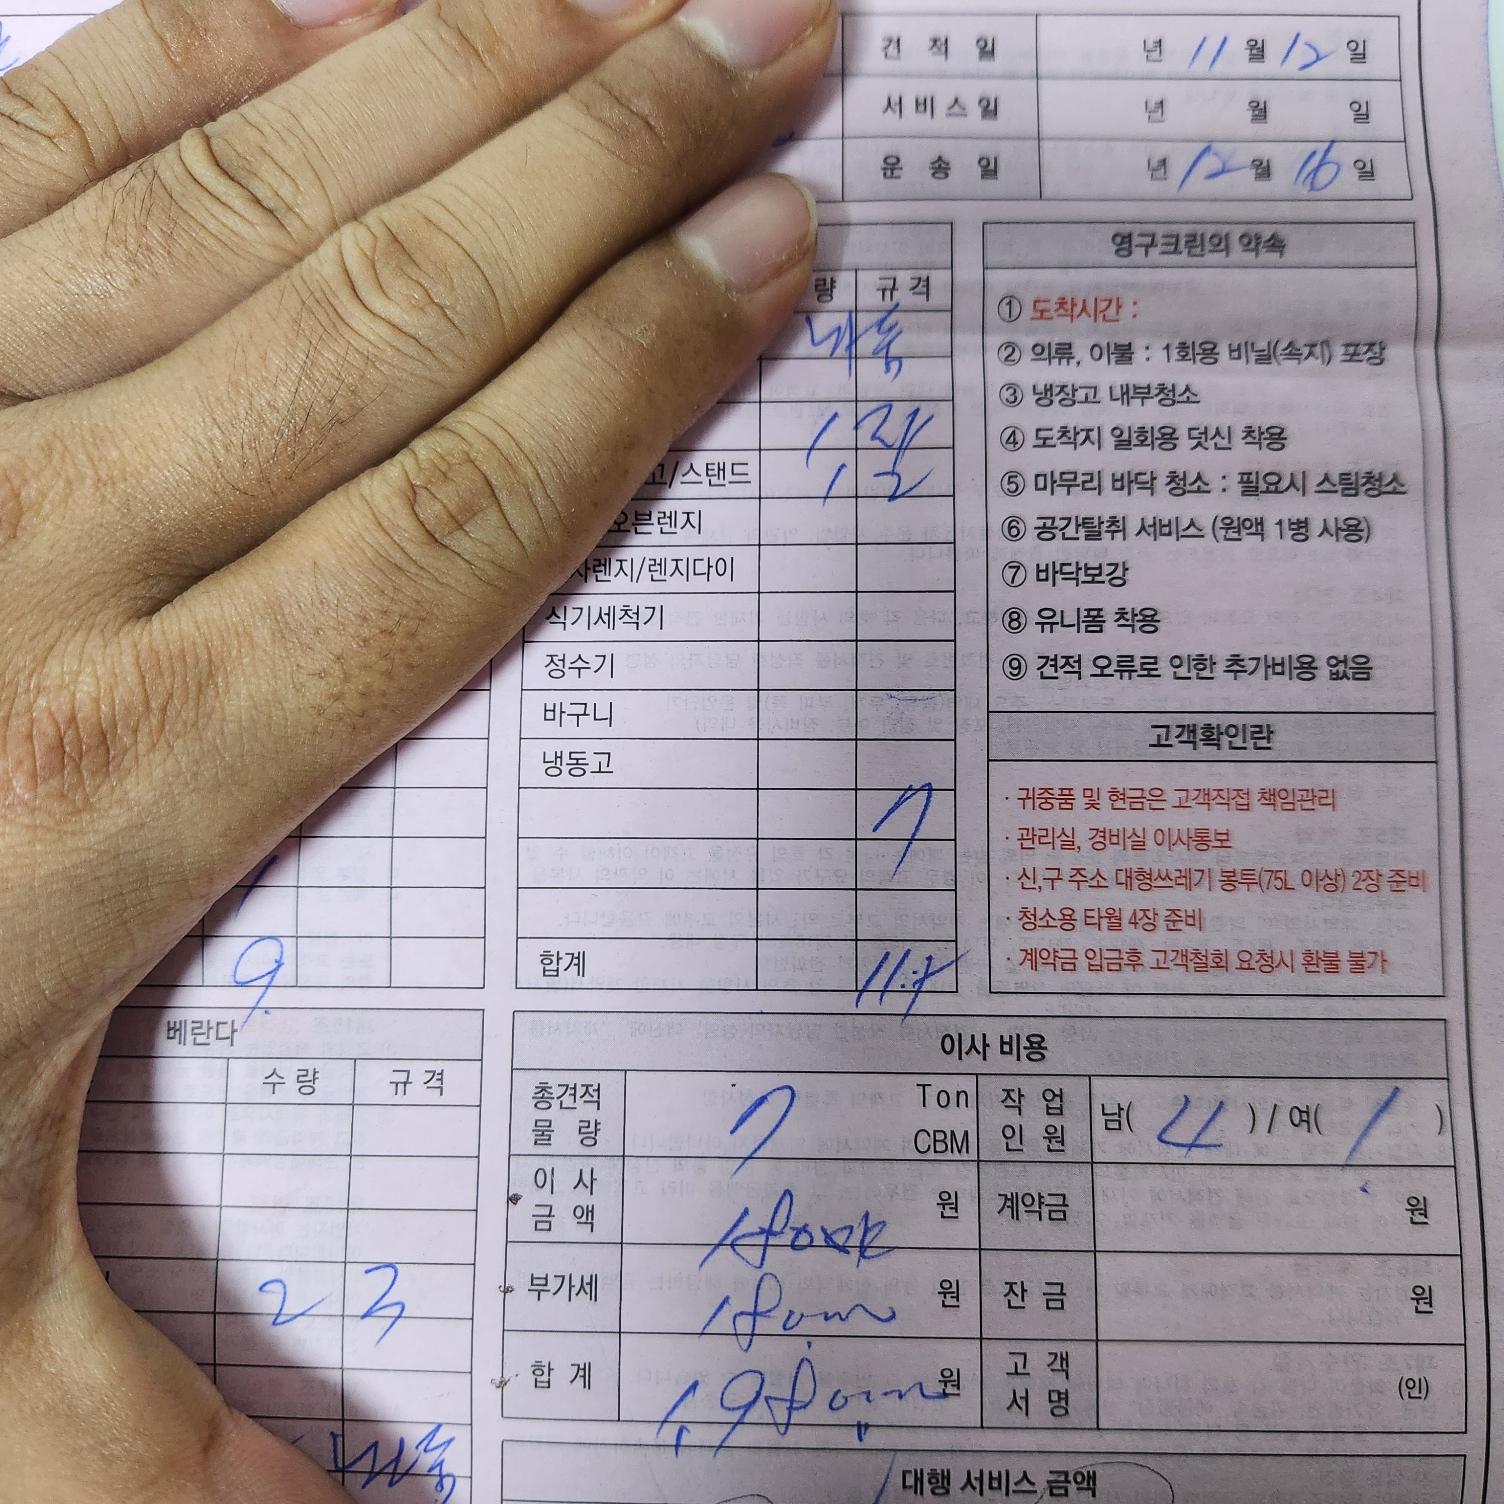 견적일 년 11월 12일
서비스일 년 월 일
운송일 년 12월 16일
영구크린의 약속
① 도착시간 :
② 의류, 이불 : 1회용 비닐(속지) 포장
③ 냉장고 내부청소
④ 도착지 일회용 덧신 착용
⑤ 마무리 바닥 청소 : 필요시 스팀청소
⑥ 공간탈취 서비스 (원액 1병 사용)
⑦ 바닥보강
⑧ 유니폼 착용
⑨ 견적 오류로 인한 추가비용 없음
고객확인란
· 귀중품 및 현금은 고객직접 책임관리
· 관리실, 경비실 이사통보
· 신,구 주소 대형쓰레기 봉투(75L 이상) 2장 준비
· 청소용 타월 4장 준비
· 계약금 입금후 고객철회 요청시 환불 불가
량 규격
고/스탠드
오븐렌지
렌지/렌지다이
식기세척기
정수기
바구니
냉동고
7
합계 11.7
9
베란다
수량 규격
2 3
이사 비용
총견적 물량 7 Ton CBM 작업 인원 남( 4 ) / 여( 1 )
이사 금액 원 계약금 원
부가세 원 잔금 원
합계 원 고객 서명 (인)
대행 서비스 금액